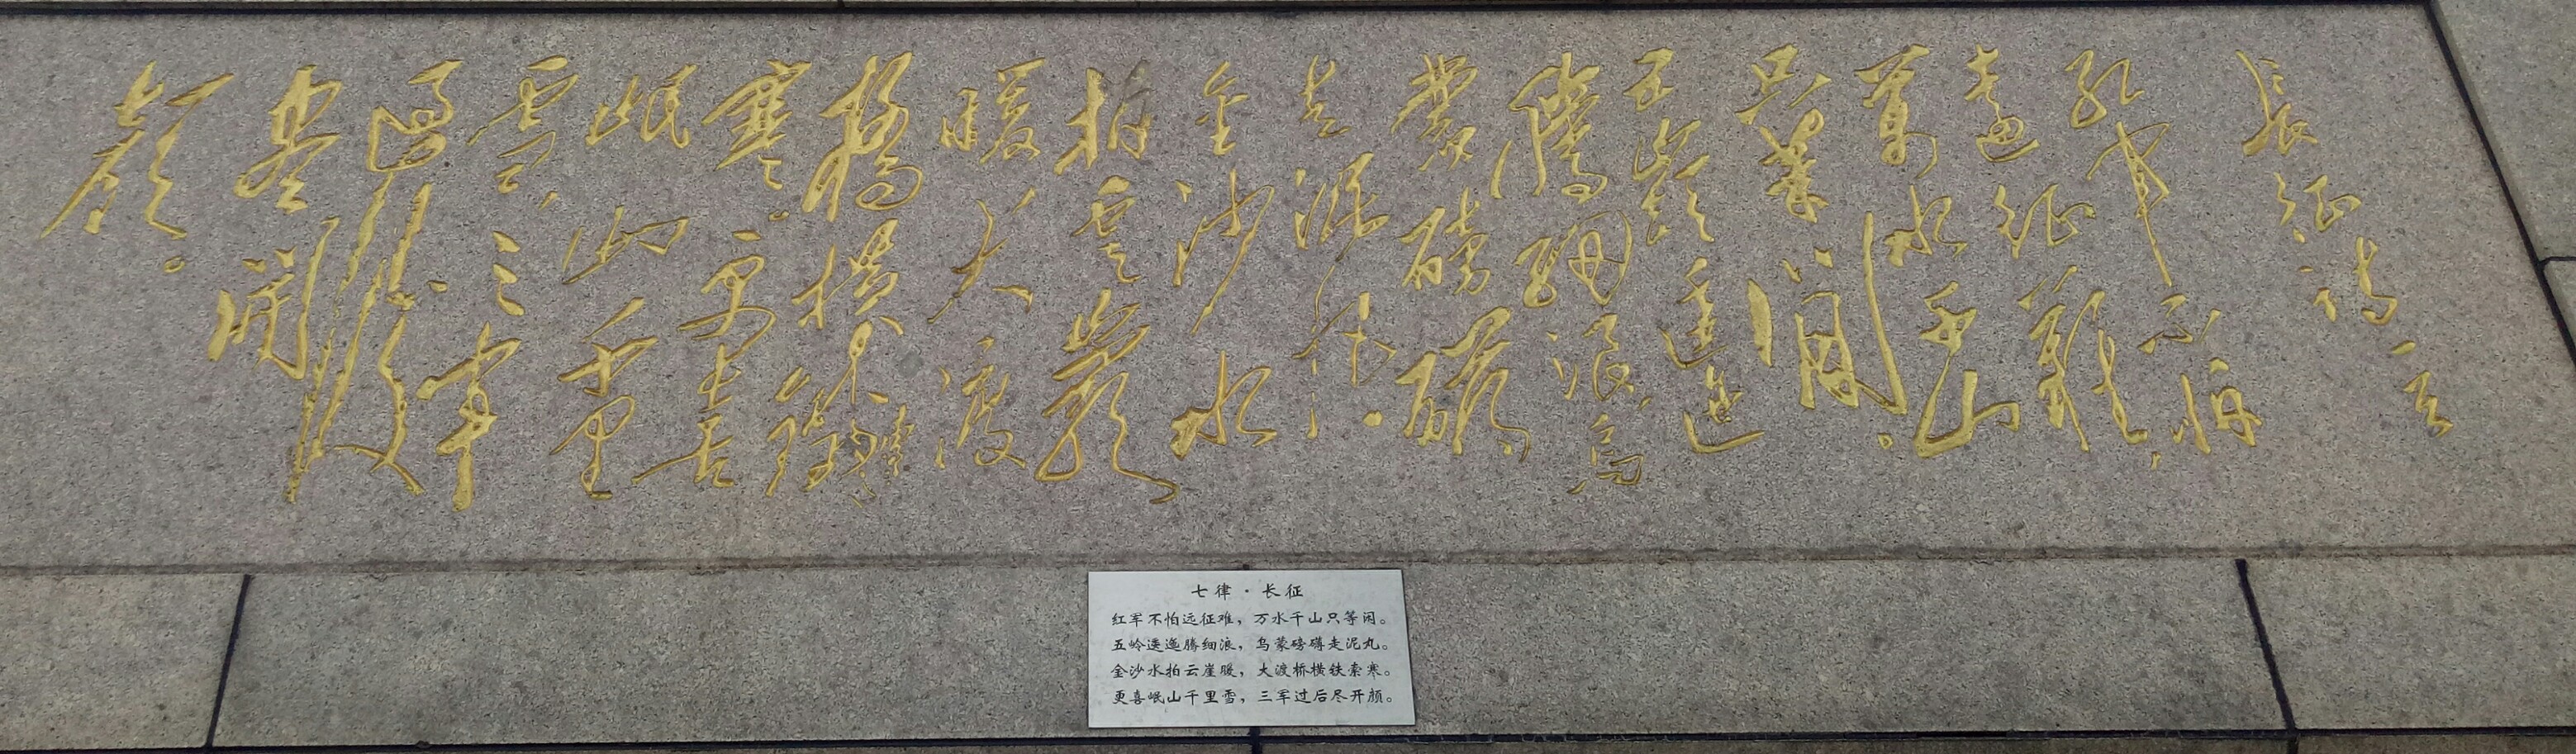 長征詩一首
紅軍不怕
遠征難,
萬水千山
只等閒。
五嶺逶迤
騰細浪,烏
蒙磅礴
走泥丸。
金沙水
拍雲崖
暖,大渡
橋橫鐵索
寒。更喜
岷山千里
雪,三軍
過後
盡開
顏。
七律·长征
红军不怕远征难,万水千山只等闲。
五岭逶迤腾细浪,乌蒙磅礴走泥丸。
金沙水拍云崖暖,大渡桥横铁索寒。
更喜岷山千里雪,三军过后尽开颜。